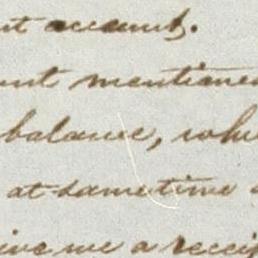 nt account.
unt mentioned
balance, whi
at same time
ive me a receip